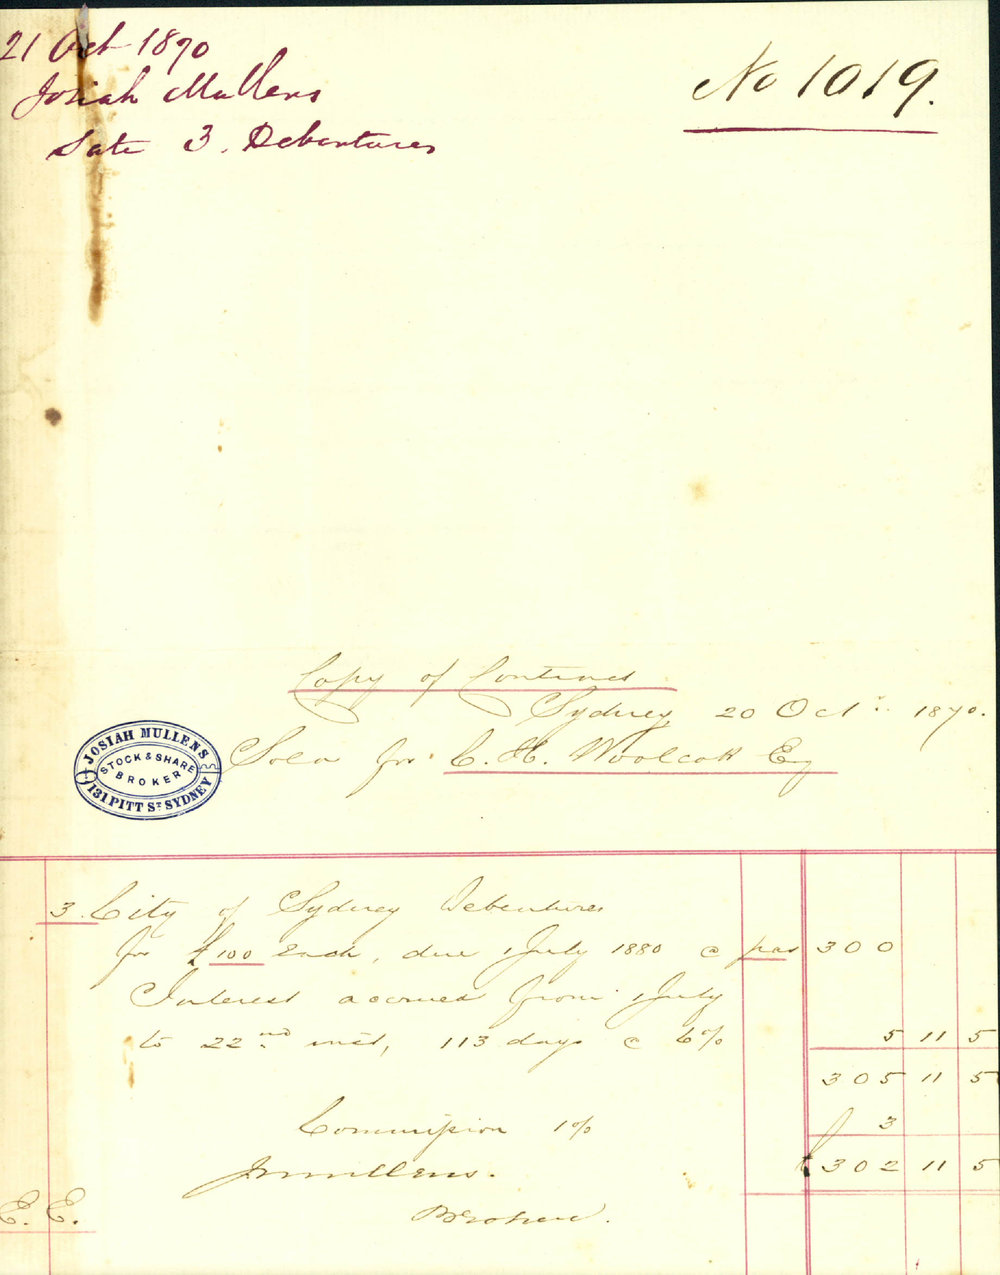 21 Oct 1870
Josiah Mullens
Sale 3. Debentures
No 1019.
Copy of Contract
Sydney, 20 Oct. 1870.
Sold for C. H. Woolcott Esq
JOSIAH MULLENS
STOCK & SHARE
BROKER
131 PITT ST SYDNEY
3 City of Sydney Debentures
for £100 Each, due 1 July 1880 @ par 300
Interest accrued from 1 July
to 22nd inst, 113 days @ 6% 5 11 5
305 11 5
Commission 1% 3
£302 11 5
J Mullens.
Broker.
E. E.